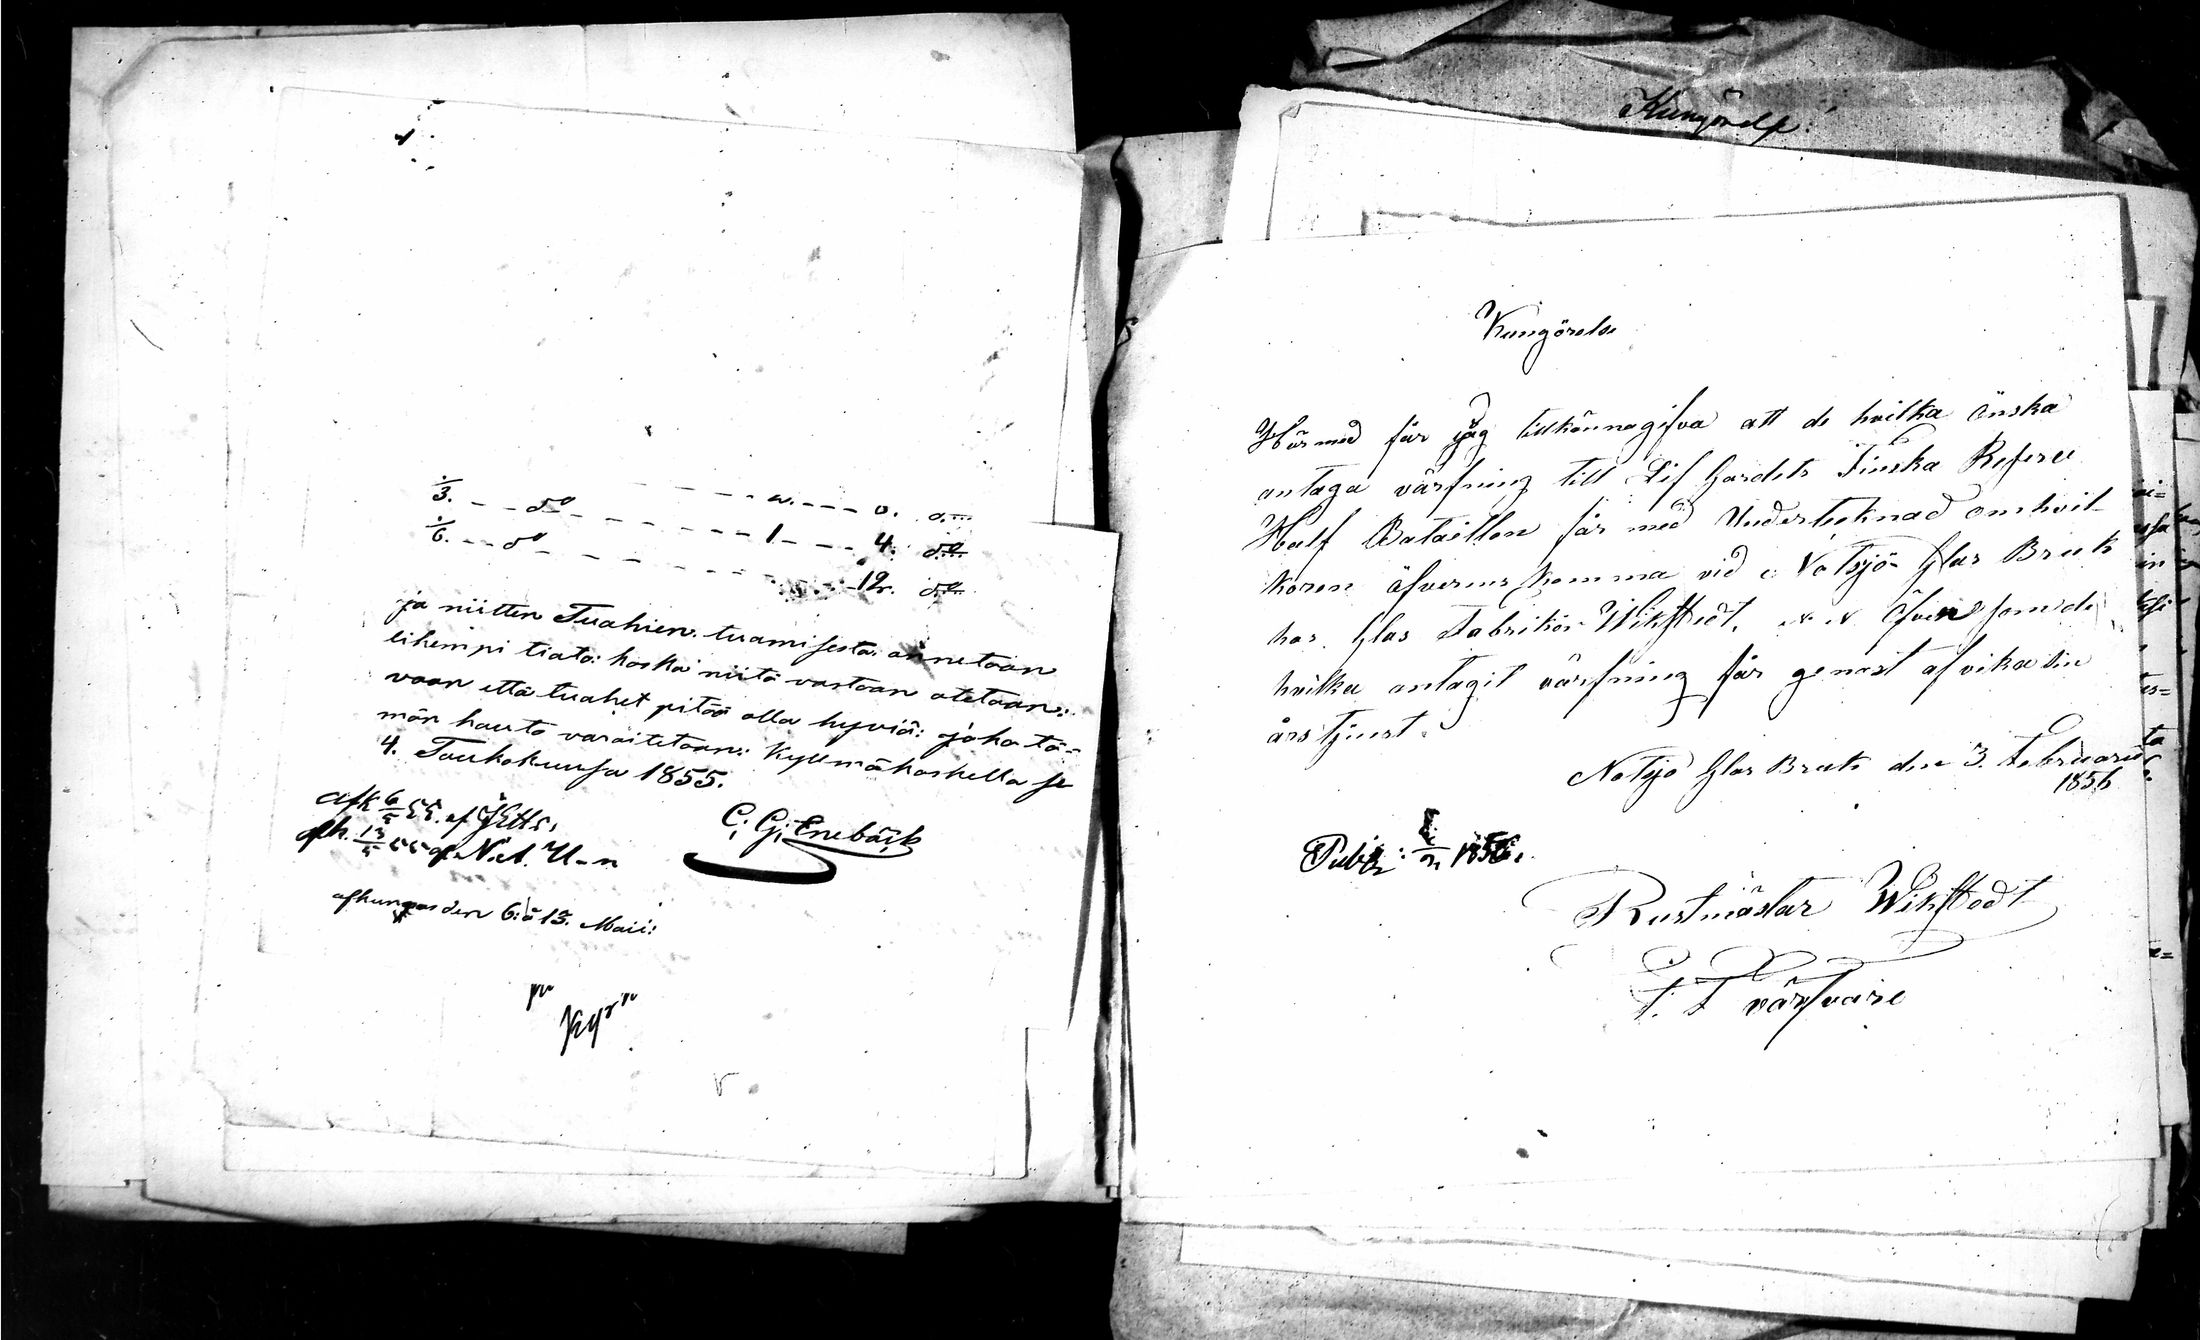 1/3. - - do - - - - - - - - - o. do
1/6. - - do - - - - - - 1 - - - 4. do
12. do
ja niitten Tuahien. tuamisesta: annetaan
likempi tiato: koska niitä vastaan otetaan:
vaan että tuahet pitää olla hyviä: joka tä-
män kautta varoitetaan: Kyllmäkoskella se
4. Toukokuusa 1855.
C: G: Enebäck
afk 6/5 55. af
afk. 13/5 55 af N. A. U-n
afkungas den 6: à 13. Maii:
Kyro
Kungörelse
Kungörelse
Härmed får jag tillkännagifva att de hvilka önska
antaga värfning till Lif Gardets Finska Reserv
Half Bataillon får med Undertecknad om hvil-
koren öfverens komma vid Notsjö Glas Bruk
hos Glas Fabrikör Wikstedt, N. N. Äfven som de
hvilka antagit värfning får genast afvika sin
års tjenst.
Notsjö Glas Bruk den 3. Februarii
1856
Publ: 1856.
Rustmästar Wikstedt
t. f. värfvare